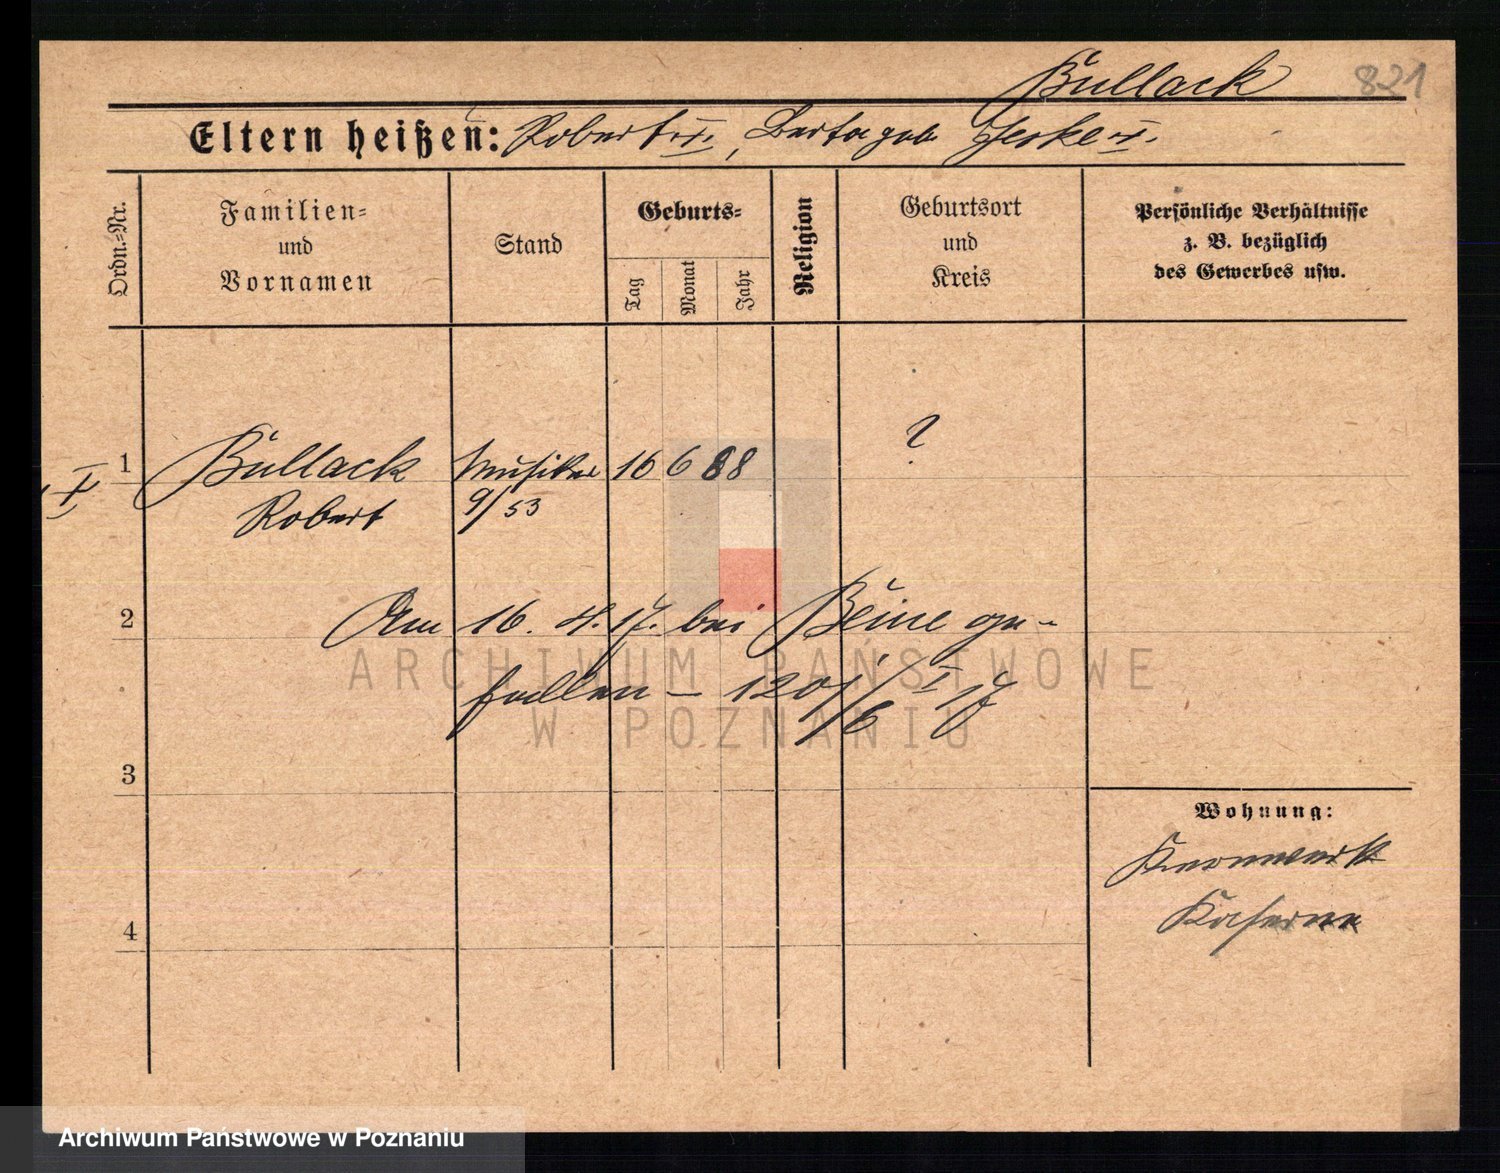 Bullack 821
Eltern heißen: Robert II., Berta geb. Jeske II.
Ordn.=Nr.
Familien=
und
Vornamen
Stand
Geburts=
Tag
Monat
Jahr
Religion
Geburtsort
und
Kreis
Persönliche Verhältnisse
z. B. bezüglich
des Gewerbes usw.
I 1 Bullack Musiker 16 6 88 ?
Robert 9/53
2 Am 16. 4. 17. bei Beine ge-
fallen – 1201/6 I 17
3
Wohnung:
Kernwerk
Kaserne
4
ARCHIWUM PAŃSTWOWE
W POZNANIU
Archiwum Państwowe w Poznaniu